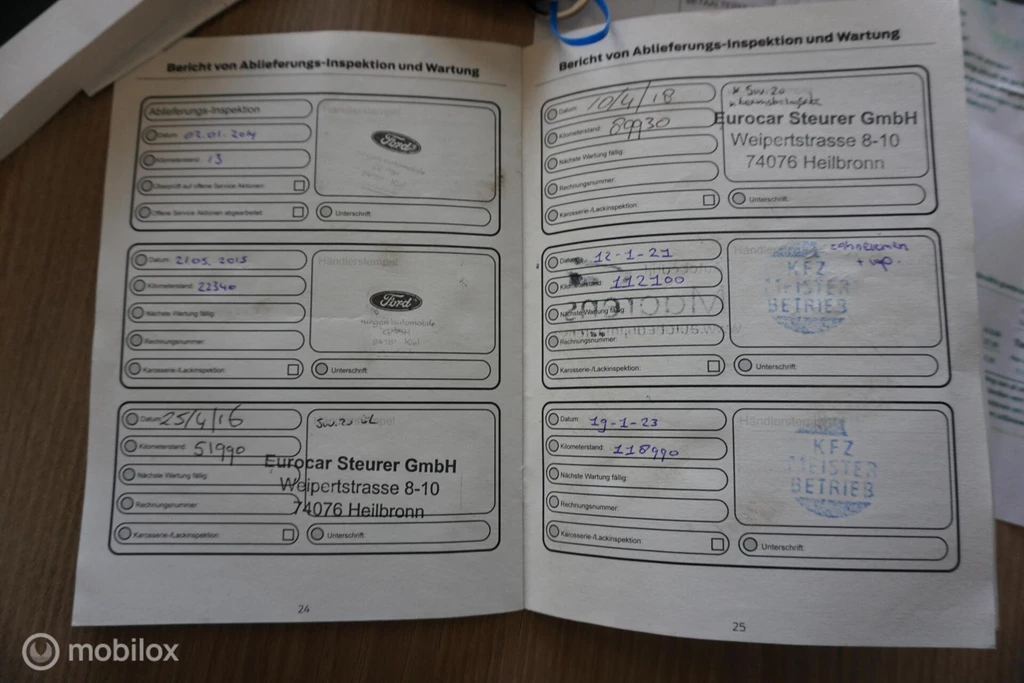 Bericht von Ablieferungs-Inspektion und Wartung
Ablieferungs-Inspektion
Datum: 02.01.2014
Kilometerstand: 13
Überprüft auf offene Service-Aktionen:
Offene Service-Aktionen abgearbeitet:
Händlerstempel
Ford
Unterschrift:
Datum: 21.05.2015
Kilometerstand: 22340
Nächste Wartung fällig:
Rechnungsnummer:
Karosserie-/Lackinspektion:
Händlerstempel
Ford
Unterschrift:
Datum: 25/4/16
Kilometerstand: 51990
Nächste Wartung fällig:
Rechnungsnummer:
Karosserie-/Lackinspektion:
Eurocar Steurer GmbH
Weipertstrasse 8-10
74076 Heilbronn
Unterschrift:
24
Bericht von Ablieferungs-Inspektion und Wartung
Datum: 10/4/18
Kilometerstand: 89930
Nächste Wartung fällig:
Rechnungsnummer:
Karosserie-/Lackinspektion:
Eurocar Steurer GmbH
Weipertstrasse 8-10
74076 Heilbronn
Unterschrift:
Datum: 12-1-21
Kilometerstand: 112100
Nächste Wartung fällig:
Rechnungsnummer:
Karosserie-/Lackinspektion:
KFZ
MEISTER
BETRIEB
Unterschrift:
Datum: 19-1-23
Kilometerstand: 118990
Nächste Wartung fällig:
Rechnungsnummer:
Karosserie-/Lackinspektion:
Händlerstempel
KFZ
MEISTER
BETRIEB
Unterschrift:
25
mobilox